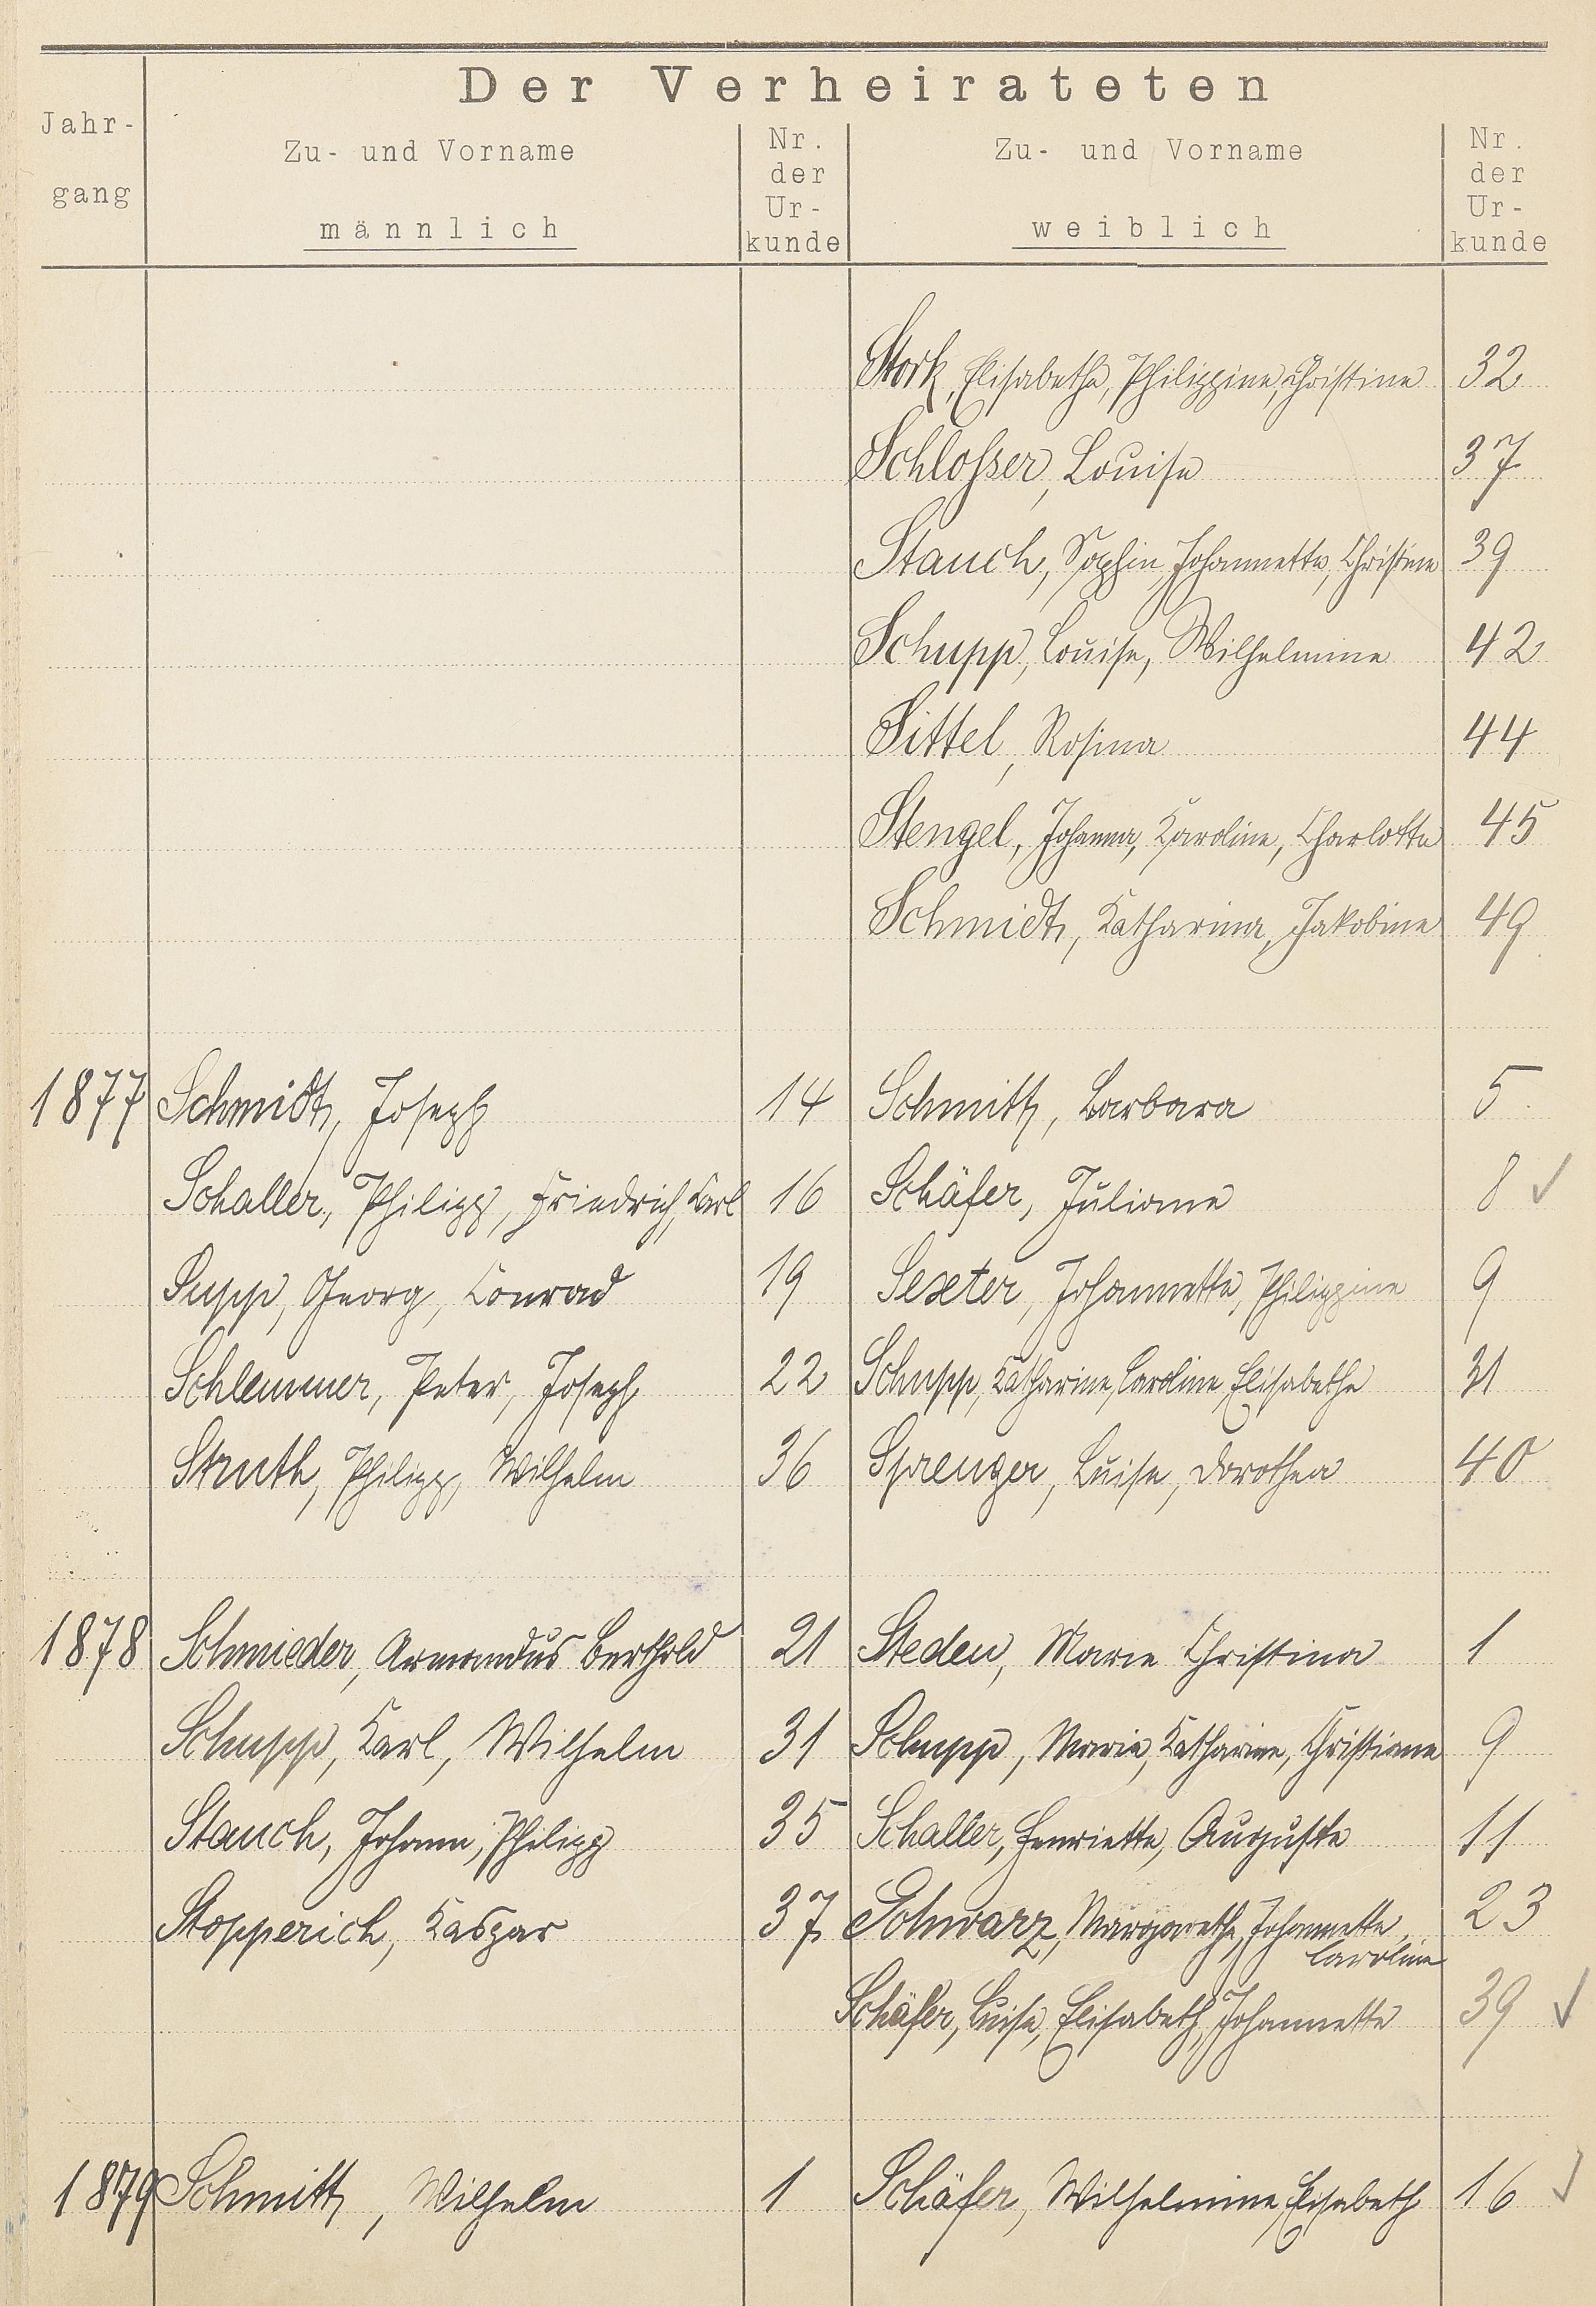 Der Verheirateten
Jahr-
gang
Zu- und Vorname
männlich
Nr.
der
Ur-
kunde
Zu- und Vorname
weiblich
Nr.
der
Ur-
kunde
Stork, Elisabethe, Philippine, Christine 32
Schlosser, Louise 37
Stauch, Sophie, Johannette, Christine 39
Schupp, Louise, Wilhelmine 42
Sittel, Rosina 44
Stengel, Johanna, Karoline, Charlotte 45
Schmidt, Katharina, Jakobine 49
1877 Schmidt, Joseph 14 Schmitt, Barbara 5
Schaller, Philipp, Friedrich, Carl 16 Schäfer, Juliane 8 ✓
Supp, Georg, Conrad 19 Sexter, Johannette, Philippine 9
Schlemmer, Peter, Joseph 22 Schupp, Katharine, Caroline, Elisabethe 31
Struth, Philipp, Wilhelm 36 Sprenger, Luise, Dorothea 40
1878 Schmieder, Armandus Berthold 21 Steden, Marie Christina 1
Schupp, Karl, Wilhelm 31 Schupp, Marie, Katharine, Christiane 9
Stauch, Johann, Philipp 35 Schaller, Henriette, Auguste 11
Stopperich, Kaspar 37 Schwarz, Margarethe, Johannette, 23
Caroline
Schäfer, Luise, Elisabeth, Johannette 39 ✓
1879 Schmitt, Wilhelm 1 Schäfer, Wilhelmine, Elisabeth 16 ✓